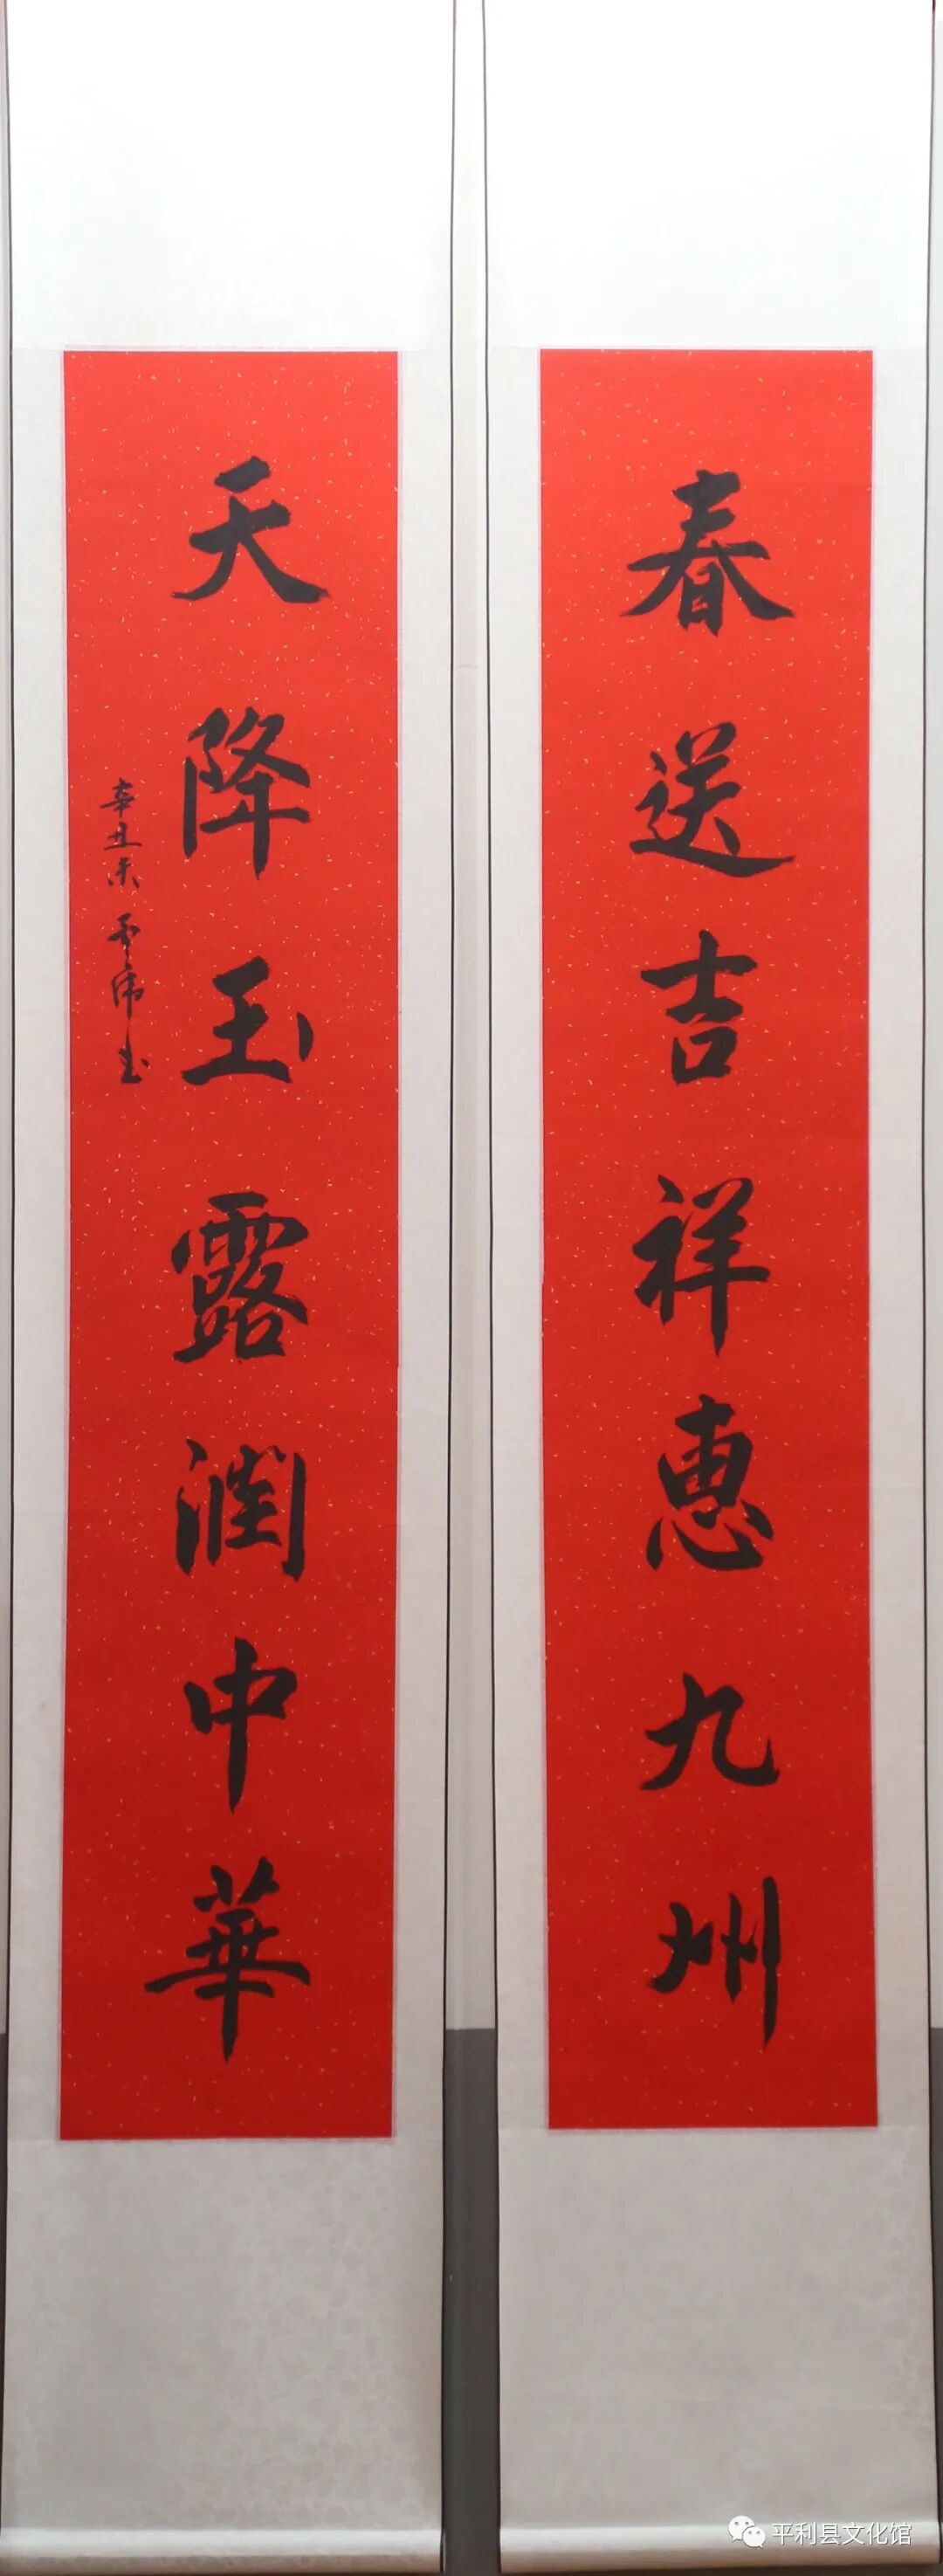 春送吉祥惠九州
天降玉露润中華
辛丑 雲偉書
平利县文化馆